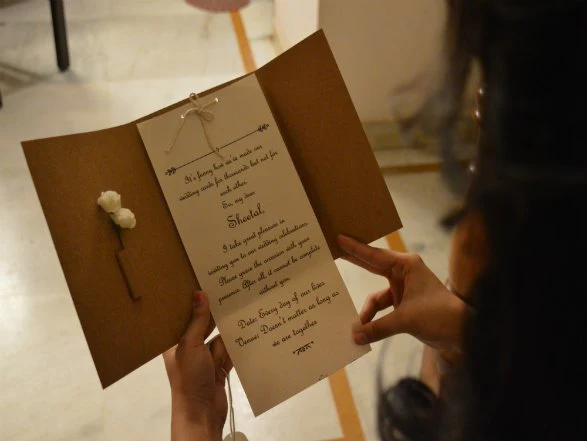 It's funny how us is made our
wedding cards for thousands but not for
each other.
So, my dear
Sheetal,
I take great pleasure in
inviting you to our wedding celebrations.
Please grace the occasion with your
presence. After all, it cannot be complete
without you.
Date: Every day of our lives
Venue: Doesn't matter as long as
we are together